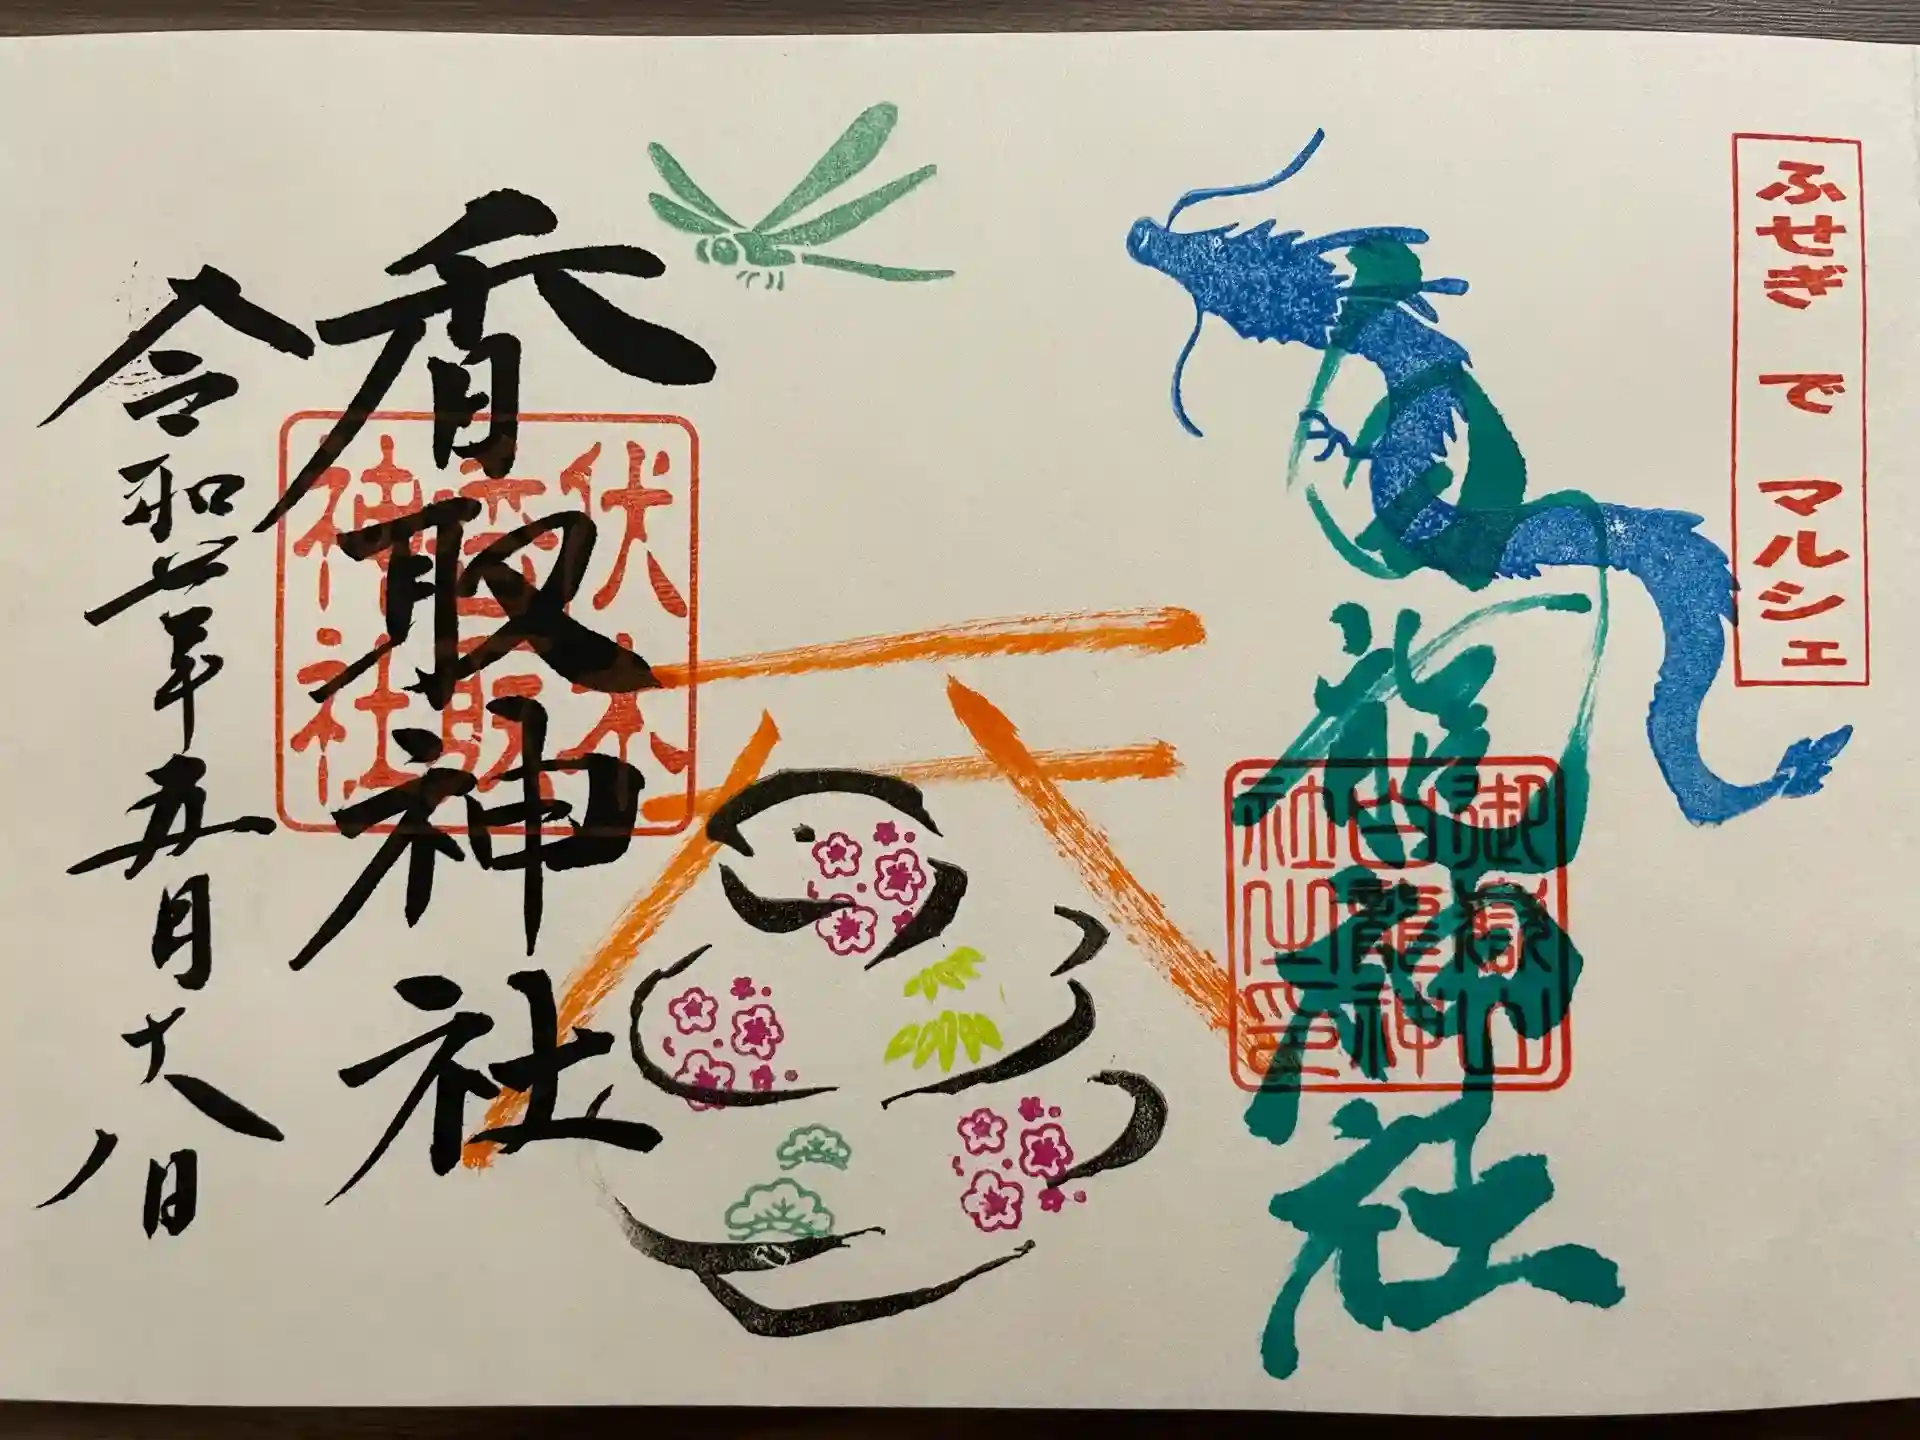 ふせぎ で マルシェ
白龍神社
御嶽山
白龍神
社之印
香取神社
伏木
香取
神社
令和 年五月十八日